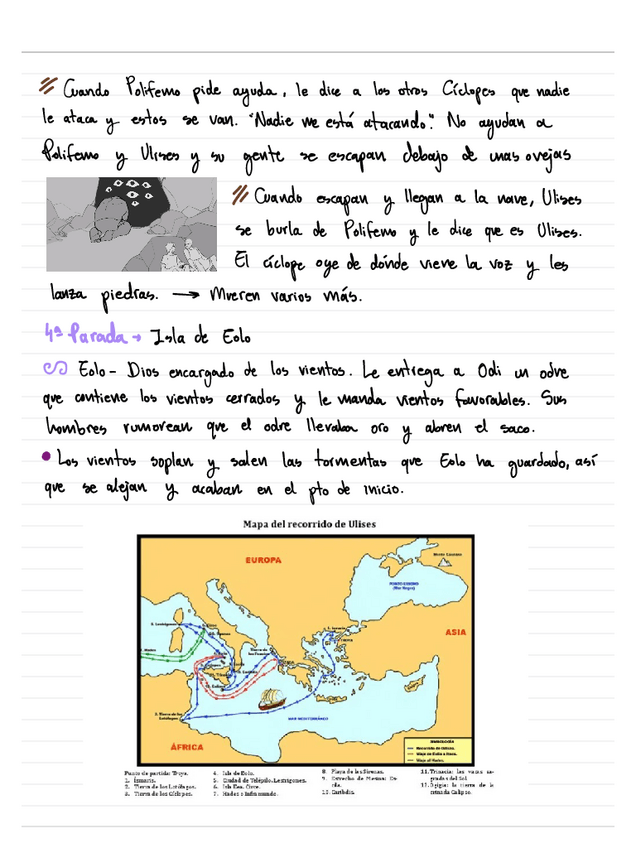 Cuando Polifemo pide ayuda, le dice a los otros Cíclopes que nadie
le ataca y estos se van. "Nadie me está atacando". No ayudan a
Polifemo y Ulises y su gente se escapan debajo de unas ovejas
Cuando escapan y llegan a la nave, Ulises
se burla de Polifemo y le dice que es Ulises.
El cíclope oye de dónde viene la voz y les
lanza piedras. → Mueren varios más.
4ª Parada → Isla de Eolo
Eolo - Dios encargado de los vientos. Le entrega a Odi un odre
que contiene los vientos cerrados y le manda vientos favorables. Sus
hombres rumorean que el odre llevaba oro y abren el saco.
Los vientos soplan y salen las tormentas que Eolo ha guardado, así
que se alejan y acaban en el pto de inicio.
Mapa del recorrido de Ulises
EUROPA
PONTO EUXINO
(Mar Negro)
ASIA
MAR MEDITERRÁNEO
ÁFRICA
Punto de partida: Troya.
1. Ismaros.
2. Tierra de los Lotófagos.
3. Tierra de los Cíclopes.
4. Isla de Eolo.
5. Ciudad de Telépilo. Lestrigones.
6. Isla Eea. Circe.
7. Hades o Inframundo.
8. Playa de las Sirenas.
9. Estrecho de Mesina: Es-
cila.
10. Caribdis.
11. Trinacia: las vacas sa-
gradas del Sol.
12. Ogigia: la tierra de la
ninfa Calipso.